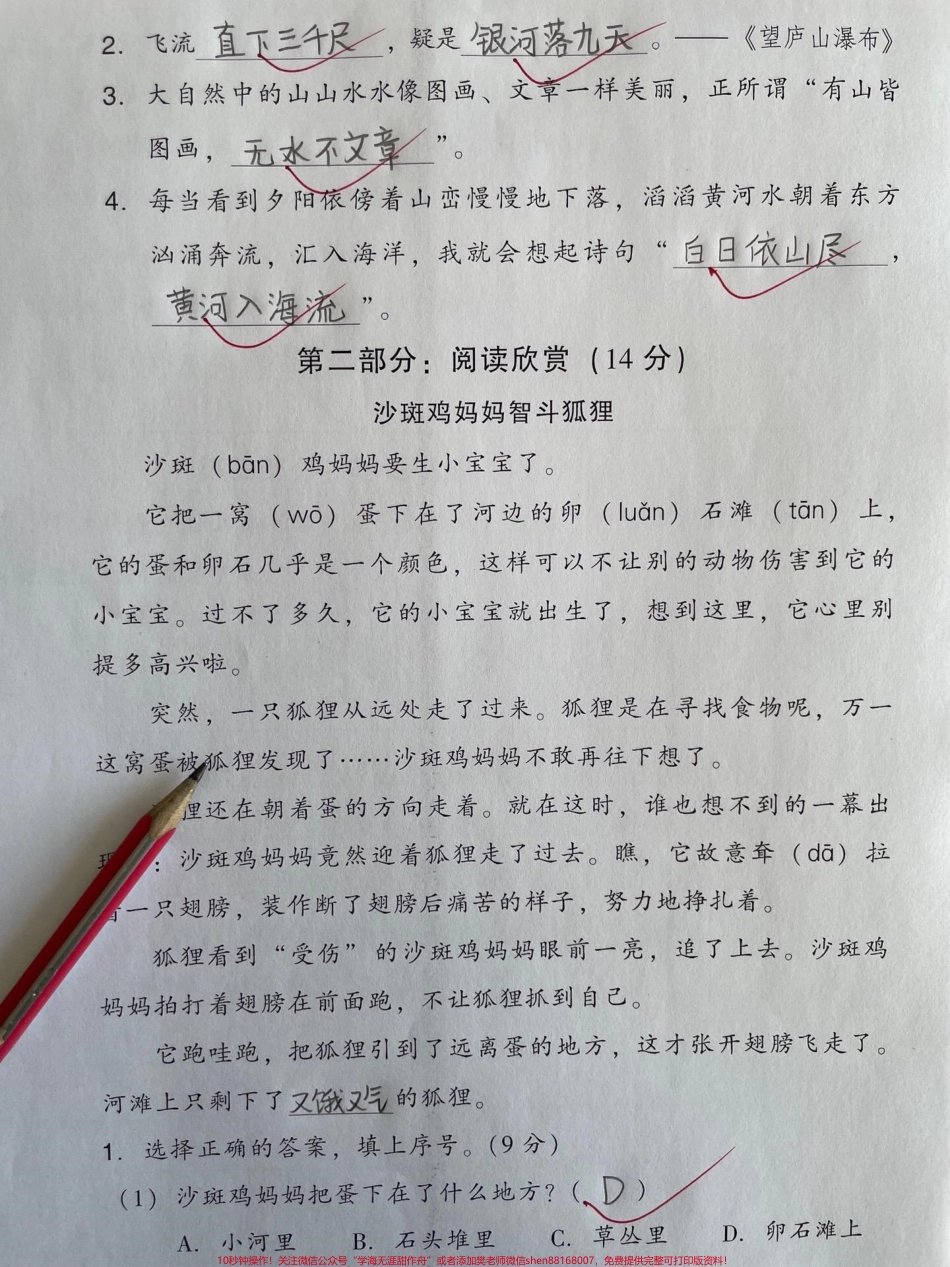 2. 飞流 直下三千尺 ，疑是 银河落九天 。——《望庐山瀑布》
3. 大自然中的山山水水像图画、文章一样美丽，正所谓“有山皆
图画， 无水不文章 ”。
4. 每当看到夕阳依傍着山峦慢慢地下落，滔滔黄河水朝着东方
汹涌奔流，汇入海洋，我就会想起诗句“ 白日依山尽 ，
黄河入海流 ”。
第二部分：阅读欣赏（14 分）
沙斑鸡妈妈智斗狐狸
沙斑（bān）鸡妈妈要生小宝宝了。
它把一窝（wō）蛋下在了河边的卵（luǎn）石滩（tān）上，
它的蛋和卵石几乎是一个颜色，这样可以不让别的动物伤害到它的
小宝宝。过不了多久，它的小宝宝就出生了，想到这里，它心里别
提多高兴啦。
突然，一只狐狸从远处走了过来。狐狸是在寻找食物呢，万一
这窝蛋被狐狸发现了……沙斑鸡妈妈不敢再往下想了。
狸还在朝着蛋的方向走着。就在这时，谁也想不到的一幕出
现：沙斑鸡妈妈竟然迎着狐狸走了过去。瞧，它故意耷（dā）拉
着一只翅膀，装作断了翅膀后痛苦的样子，努力地挣扎着。
狐狸看到“受伤”的沙斑鸡妈妈眼前一亮，追了上去。沙斑鸡
妈妈拍打着翅膀在前面跑，不让狐狸抓到自己。
它跑哇跑，把狐狸引到了远离蛋的地方，这才张开翅膀飞走了。
河滩上只剩下了 又饿又气 的狐狸。
1. 选择正确的答案，填上序号。（9 分）
（1）沙斑鸡妈妈把蛋下在了什么地方？（ D ）
A. 小河里 B. 石头堆里 C. 草丛里 D. 卵石滩上
10秒钟操作！关注微信公众号“学海无涯甜作舟”或者添加樊老师微信shen88168007，免费提供完整可打印版资料！